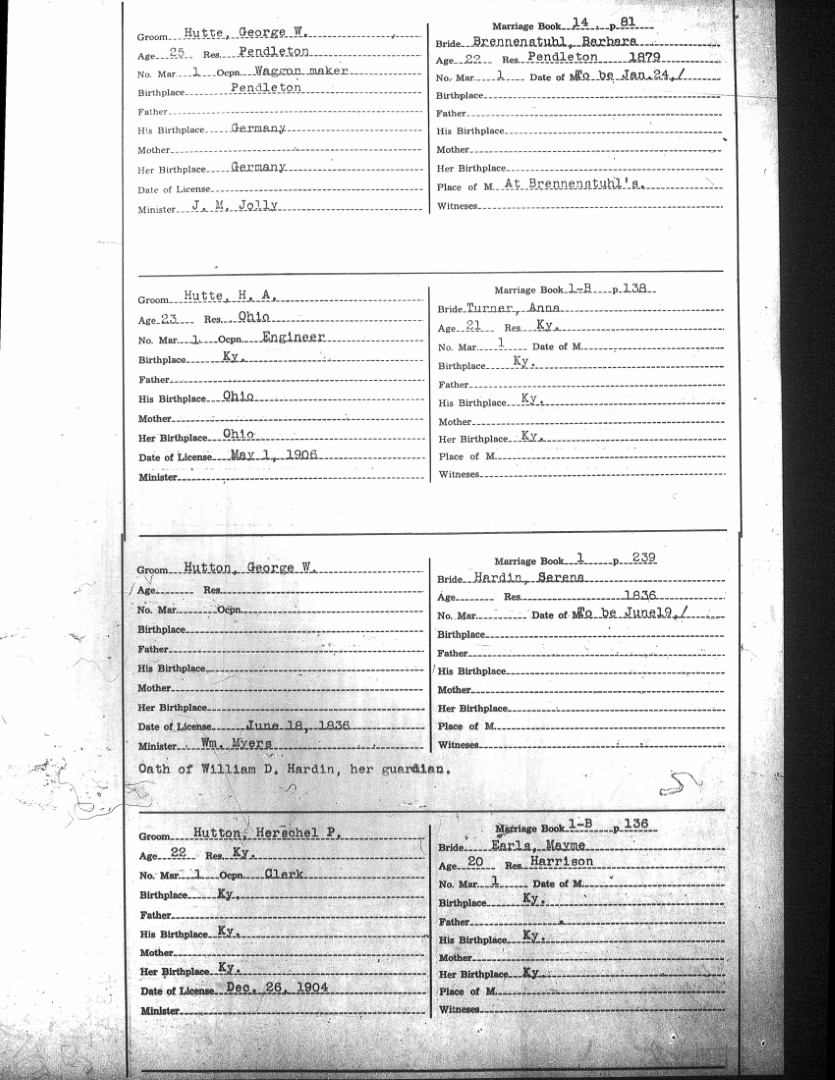 Groom Hutte, George W.
Age 25 Res. Pendleton
No. Mar 1 Ocpn. Waggon maker
Birthplace Pendleton
Father
His Birthplace Germany
Mother
Her Birthplace Germany
Date of License
Minister J. M. Jolly
Marriage Book 14 p. 81
Bride Brennenstuhl, Barbara
Age 22 Res Pendleton 1879
No. Mar 1 Date of M To be Jan.24,/
Birthplace
Father
His Birthplace
Mother
Her Birthplace
Place of M. At Brennenstuhl's.
Witneses
Groom Hutte, H. A.
Age 23 Res. Ohio
No. Mar. 1 Ocpn. Engineer
Birthplace Ky.
Father
His Birthplace Ohio
Mother
Her Birthplace Ohio
Date of License May 1, 1906
Minister
Marriage Book 1-B p. 138
Bride Turner, Anna
Age 21 Res Ky.
No. Mar. 1 Date of M.
Birthplace Ky.
Father
His Birthplace Ky.
Mother
Her Birthplace Ky.
Place of M.
Witneses
Groom Hutton, George W.
Age Res.
No. Mar. Ocpn.
Birthplace
Father
His Birthplace
Mother
Her Birthplace
Date of License June 18, 1836
Minister Wm. Myers
Oath of William D. Hardin, her guardian.
Marriage Book 1 p. 239
Bride Hardin, Serena
Age Res 1836
No. Mar Date of M To be June19,/
Birthplace
Father
His Birthplace
Mother
Her Birthplace
Place of M.
Witneses
Groom Hutton, Herschel P.
Age 22 Res. Ky.
No. Mar 1 Ocpn Clerk
Birthplace Ky.
Father
His Birthplace Ky.
Mother
Her Birthplace Ky.
Date of License Dec. 26, 1904
Minister
Marriage Book 1-B p. 136
Bride Earls, Mayme
Age 20 Res Harrison
No. Mar 1 Date of M.
Birthplace Ky.
Father
His Birthplace Ky.
Mother
Her Birthplace Ky
Place of M.
Witneses